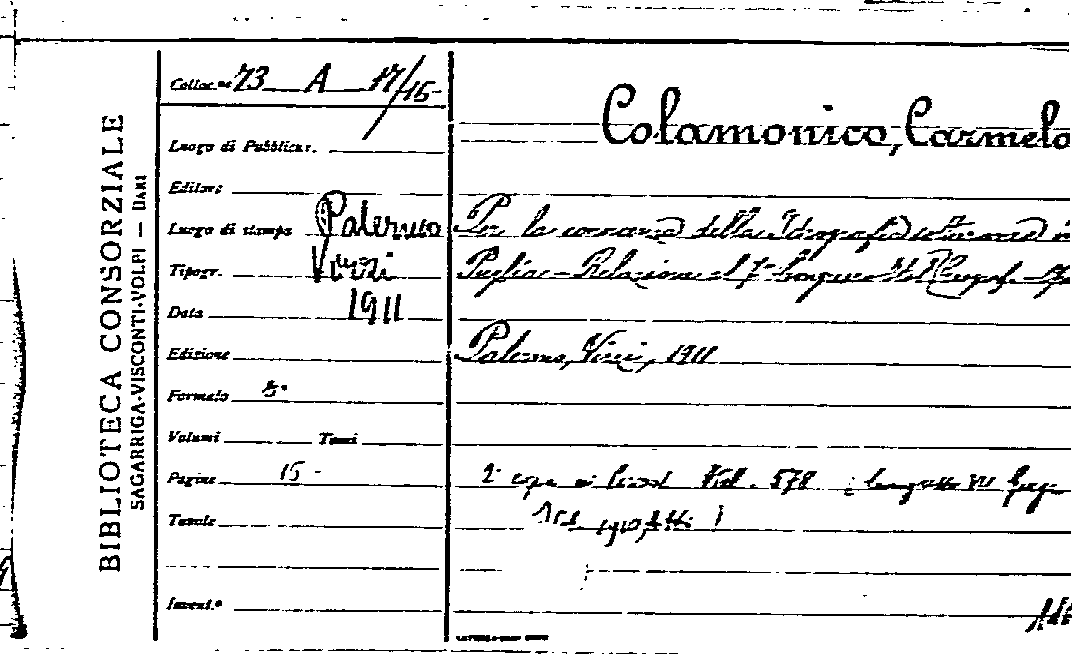 BIBLIOTECA CONSORZIALE
SAGARRIGA-VISCONTI-VOLPI — BARI
Colloc.ne 73 A 17/15
Luogo di Pubblicaz.
Editore
Luogo di stampa Palermo
Tipogr. Virzi
Data 1911
Edizione
Formato 8°
Volumi Tomi
Pagine 15
Tavole
Invent.°
Colamonico, Carmelo
Per la conoscenza della Idrografia sotterranea in
Puglia - Relazione al 7° Congresso
Palermo, Virzi, 1911
2ª copia in Vol. 578